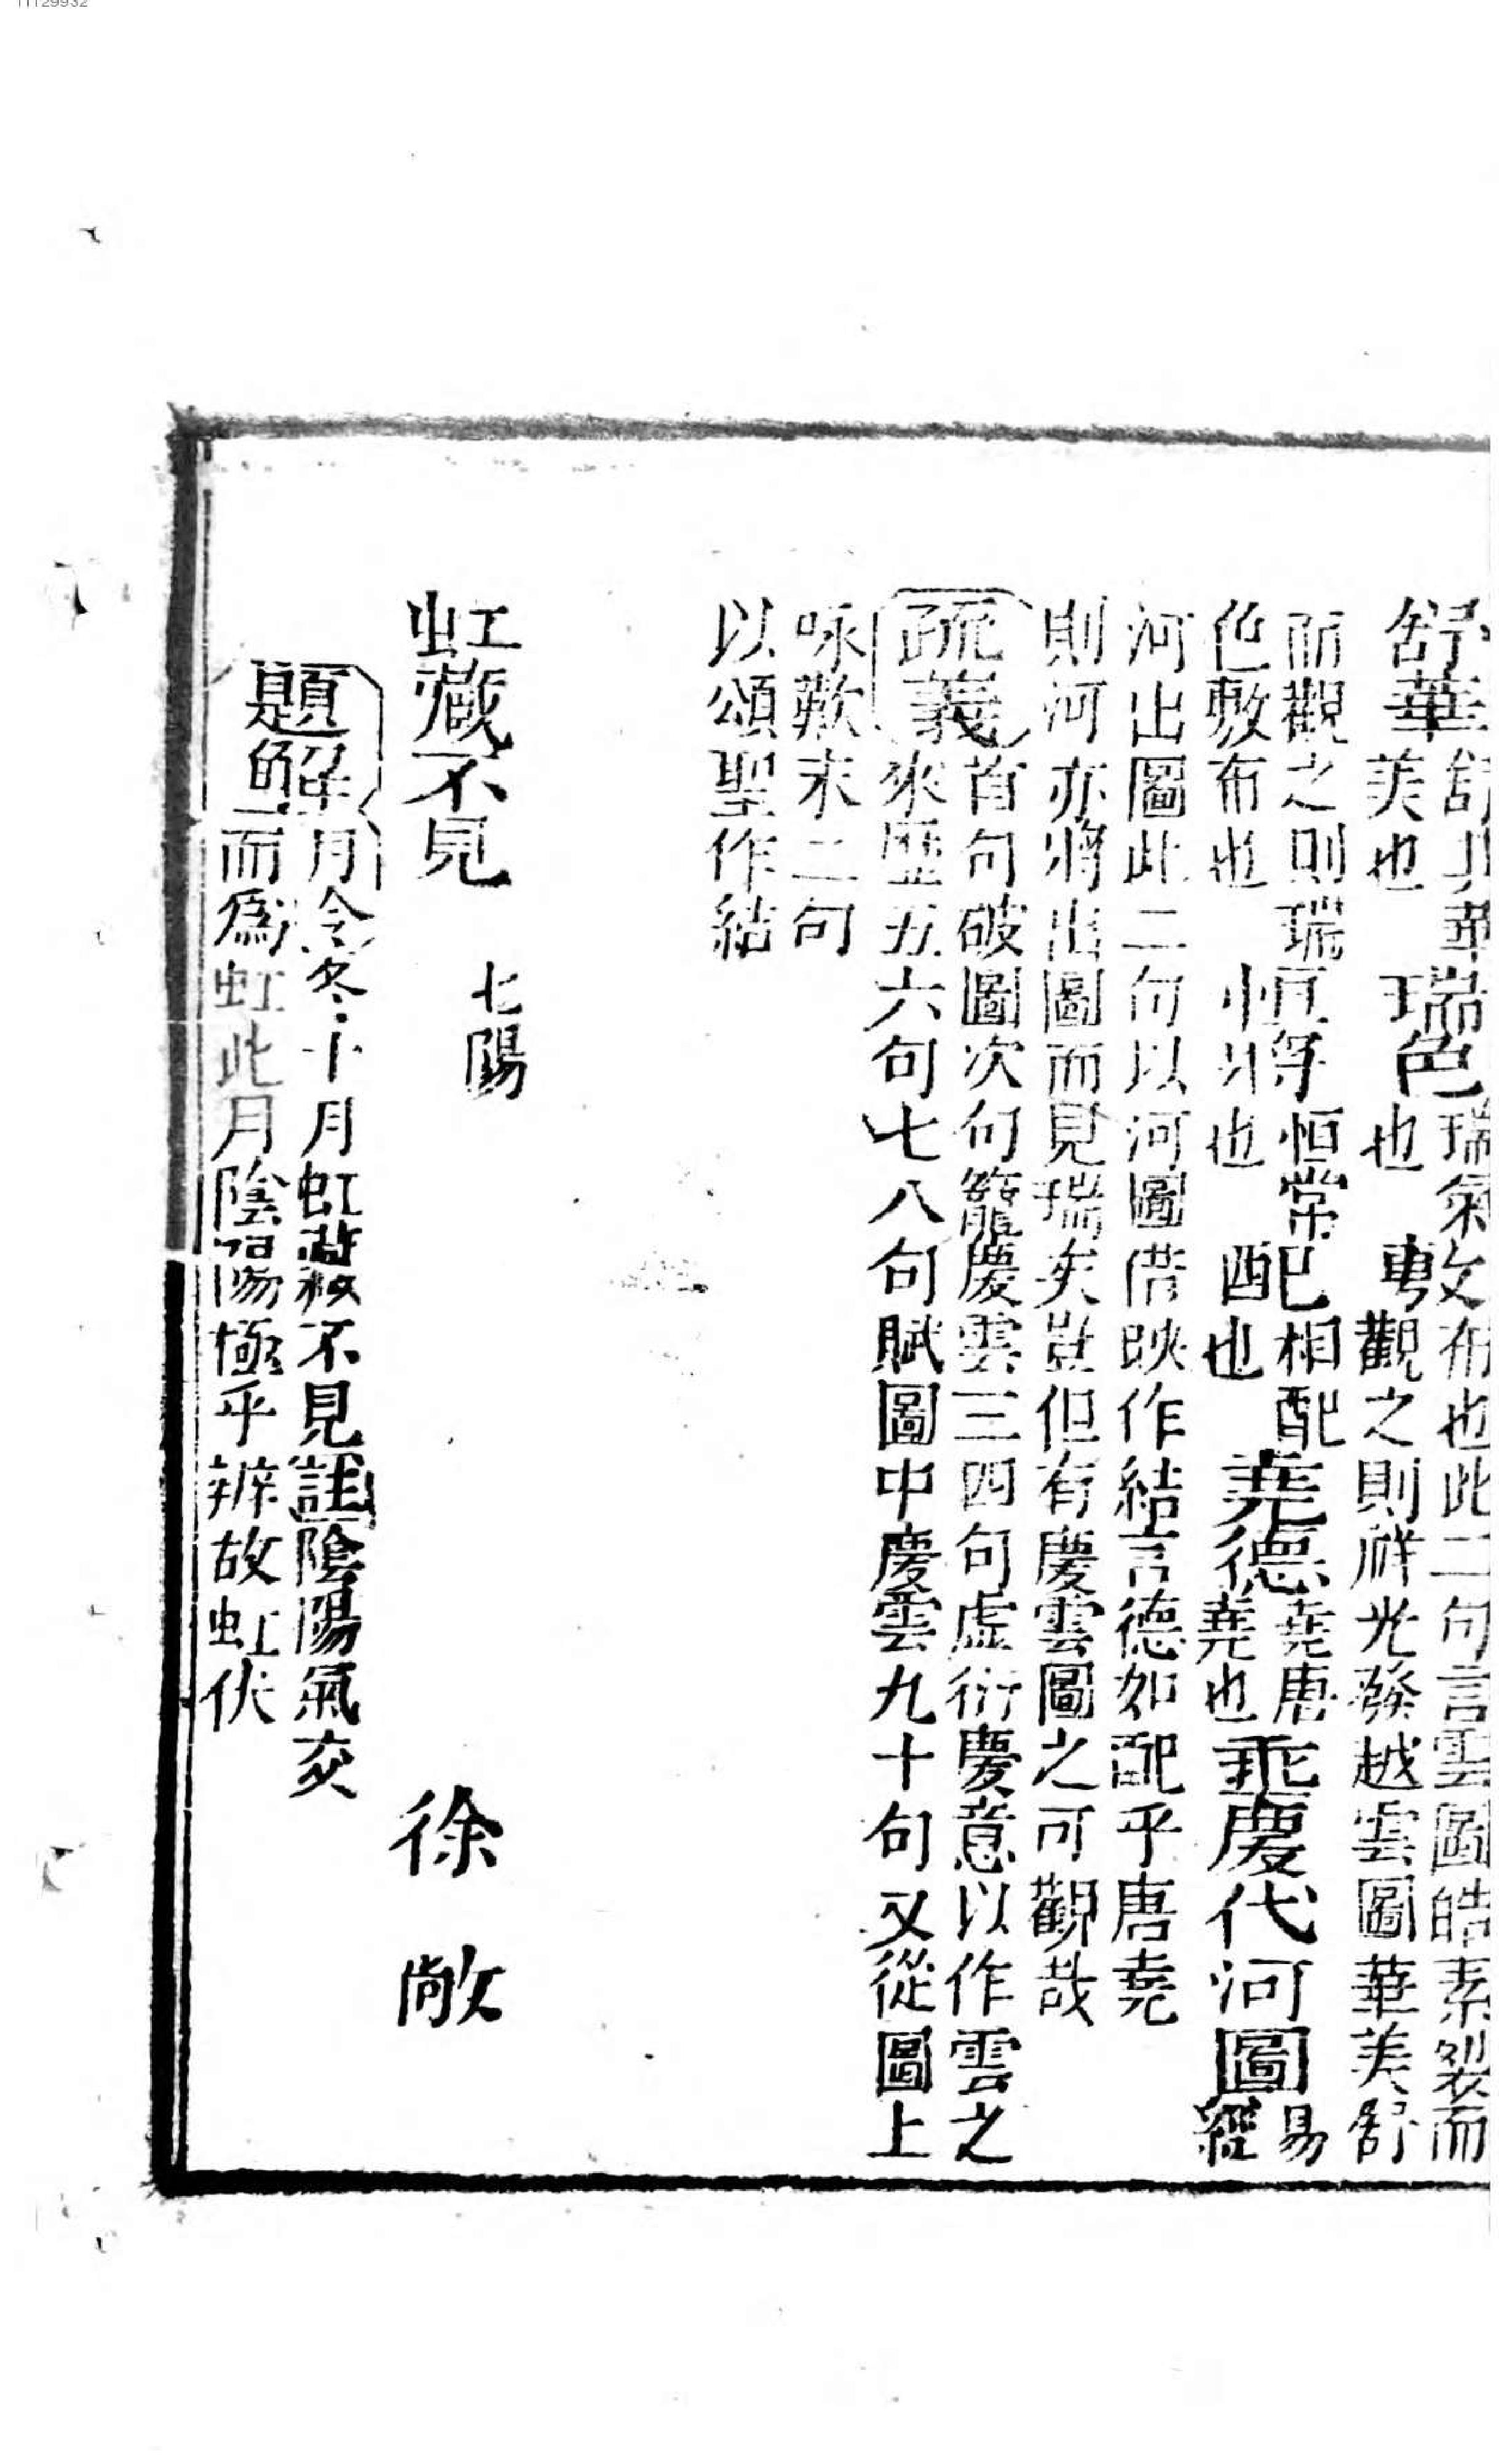 舒華舒其華美也瑞色瑞氣也敷敷布也此二句言雲圖皓素裂而觀之則祥光發越雲圖華美舒
而觀之則瑞色敷布也恒將恒常將也配相配也堯德堯唐堯也垂慶代河圖易經
河出圖此二句以河圖借映作結言德如配乎唐堯
則河亦將出圖而見瑞矣豈但有慶雲圖之可觀哉
疏義首句破圖次句籠慶雲三四句虛衍慶意以作雲之
來歷五六句七八句賦圖中慶雲九十句又從圖上
咏歎末二句
以頌聖作結
虹藏不見 七陽 徐敞
題解月令冬十月虹藏不見註陰陽氣交
而爲虹此月陰陽極乎辨故虹伏